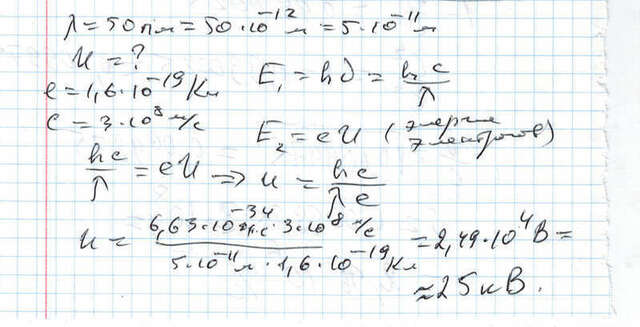 λ = 50 пм = 50·10⁻¹² м = 5·10⁻¹¹ м
U = ?
e = 1,6·10⁻¹⁹ Кл
E₁ = hν = hc/λ
c = 3·10⁸ м/с
E₂ = eU (энергия электронов)
hc/λ = eU ⇒ U = hc/λe
U = 6,63·10⁻³⁴ Дж·с · 3·10⁸ м/с / 5·10⁻¹¹ м · 1,6·10⁻¹⁹ Кл = 2,49·10⁴ В =
≈ 25 кВ.